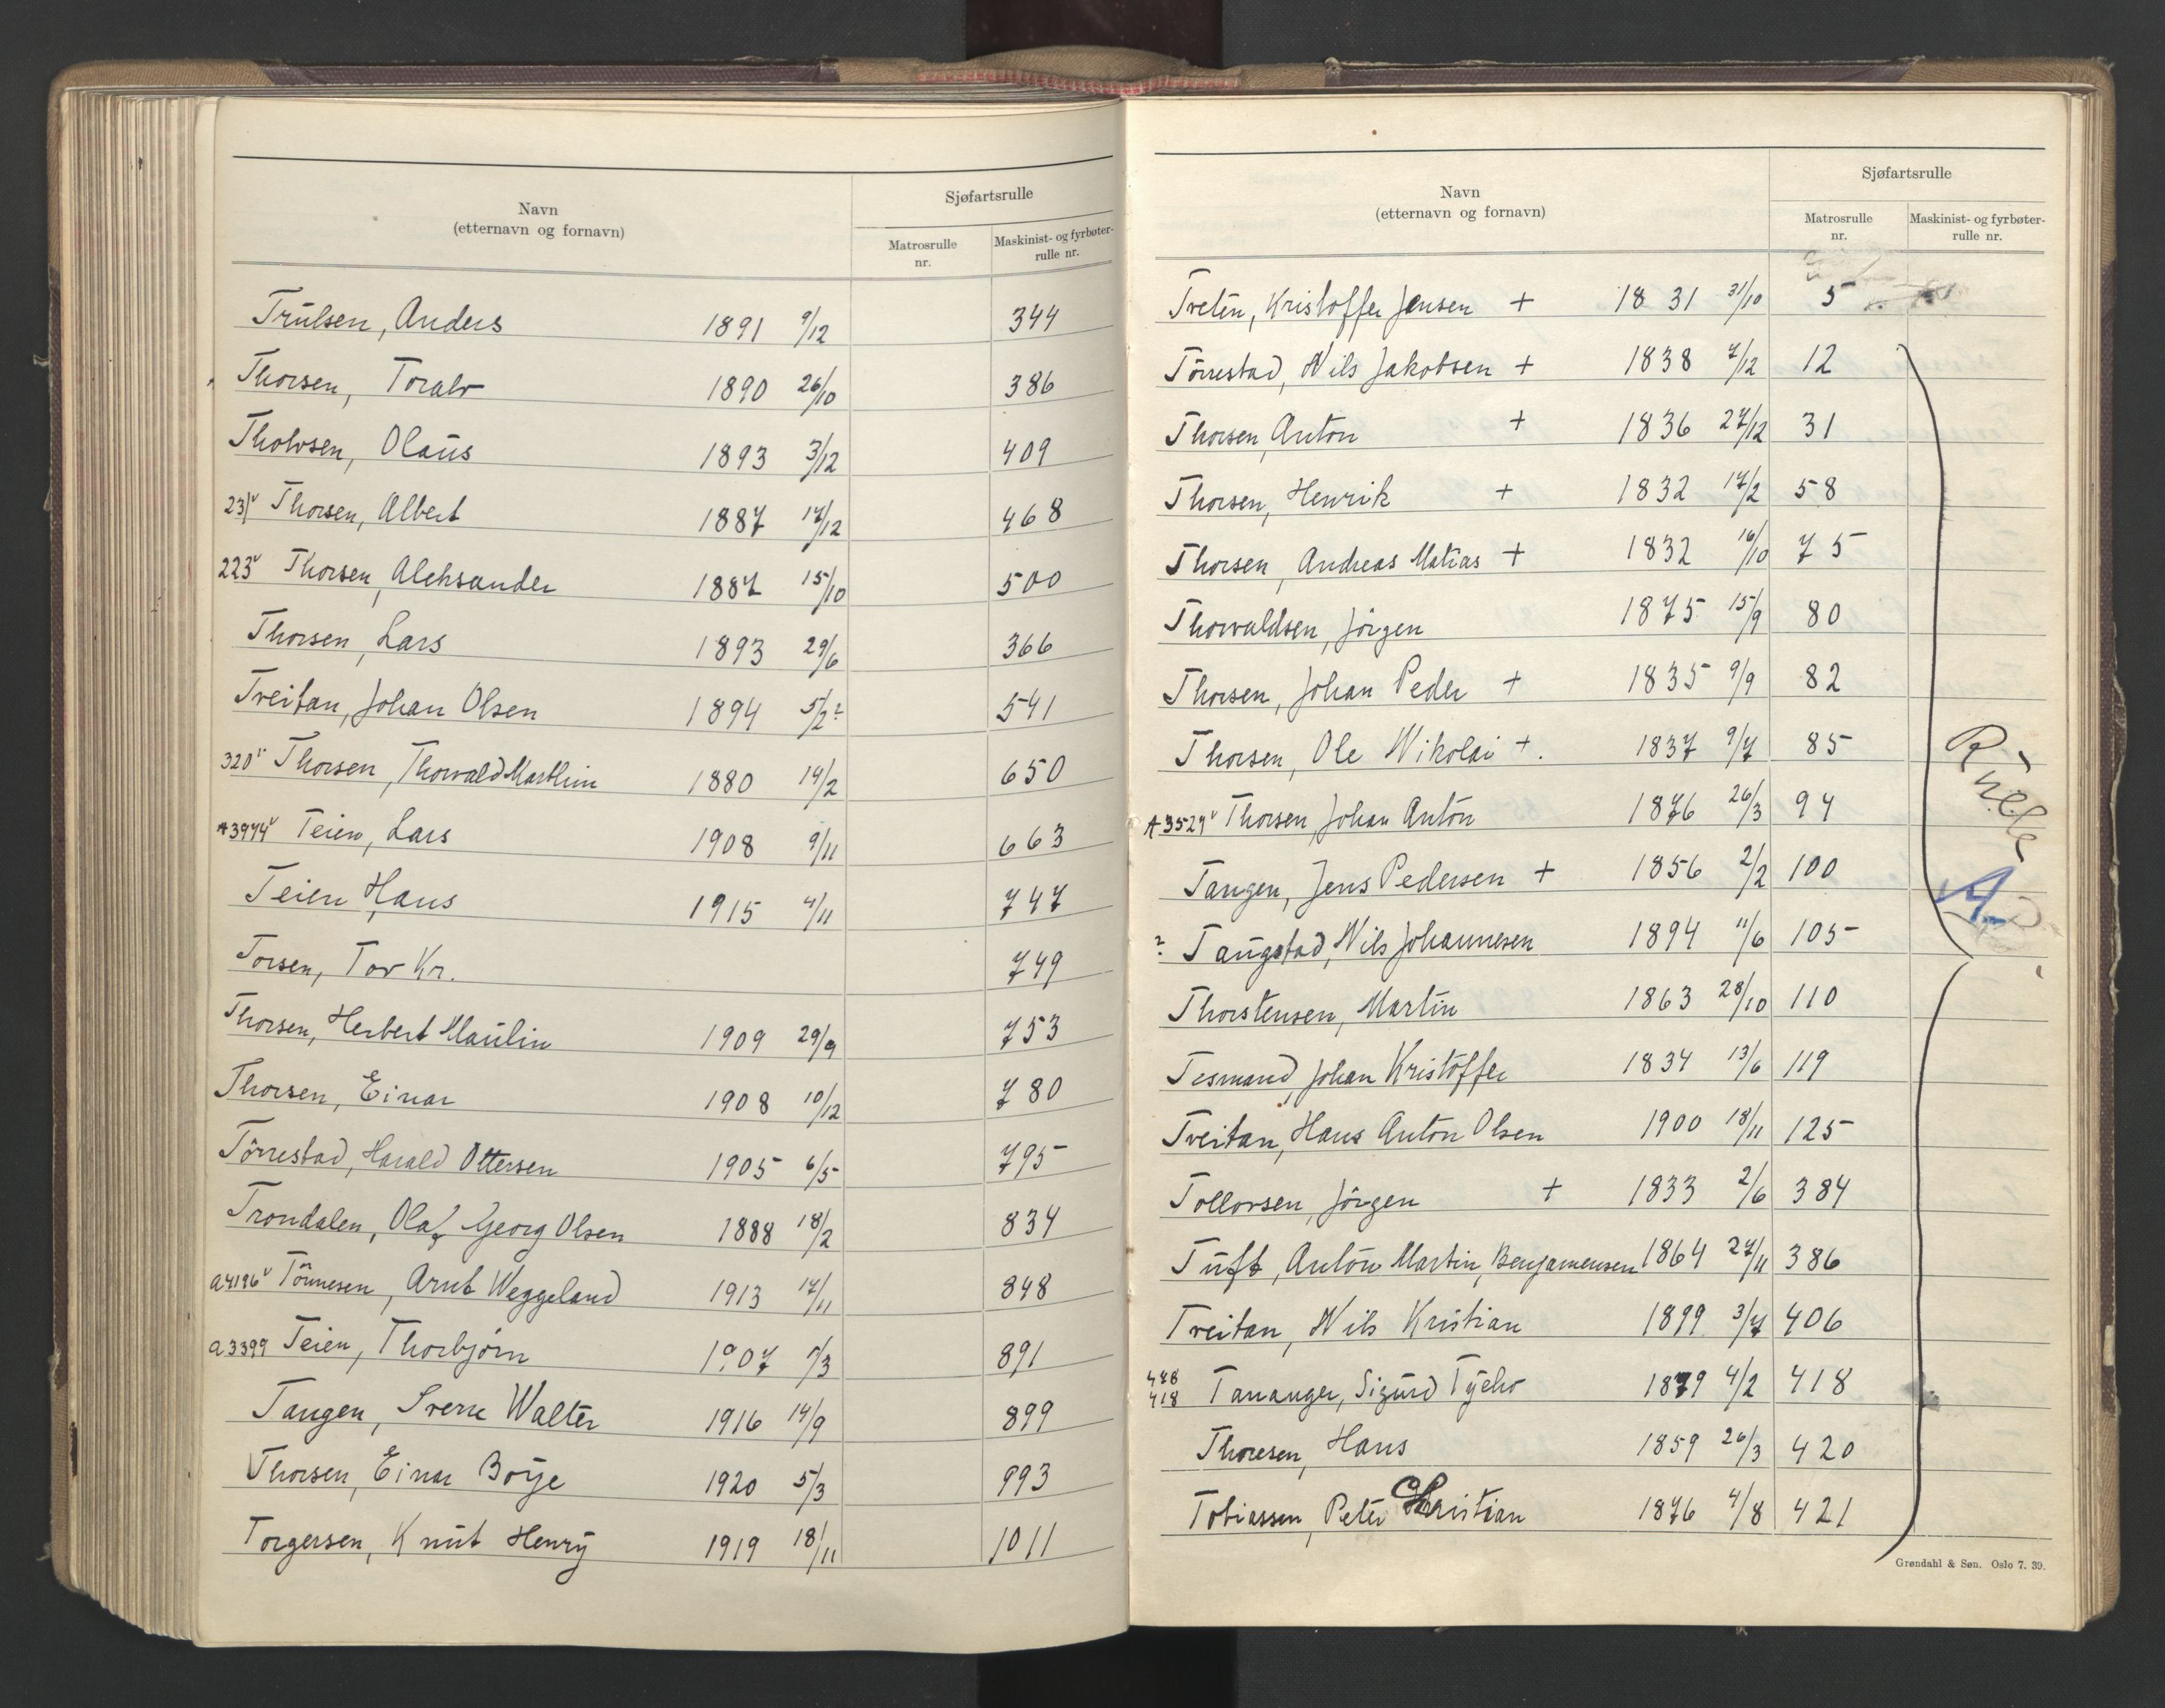 Navn
(etternavn og fornavn)
Sjøfartsrulle
Matrosrulle
nr.
Maskinist- og fyrbøter-
rulle nr.
Trulsen, Anders 1891 9/12 344
Thorsen, Toralv 1890 26/10 386
Tholvsen, Olaus 1893 3/12 409
231v Thorsen, Albert 1887 17/12 468
223v Thorsen, Aleksander 1887 15/10 500
Thorsen, Lars 1893 29/6 366
Treitan, Johan Olsen 1894 5/2? 541
320v Thorsen, Thorvald Marthin 1880 14/2 650
A3974v Teien, Lars 1908 9/11 663
Teien, Hans 1915 4/11 747
Torsen, Tor Kr. 749
Thorsen, Herbert Maulin 1909 29/9 753
Thorsen, Einar 1908 10/12 780
Törrestad, Harald Ottersen 1905 6/5 795
Trondalen, Olaf Georg Olsen 1888 18/2 834
a4196v Tönnesen, Arnt Weggeland 1913 17/11 848
a3399 Teien, Thorbjörn 1907 1/3 891
Tangen, Sverre Walter 1916 14/9 899
Thorsen, Einar Börje 1920 5/3 993
Torgersen, Knut Henry 1919 18/11 1011
Navn
(etternavn og fornavn)
Sjøfartsrulle
Matrosrulle
nr.
Maskinist- og fyrbøter-
rulle nr.
Treten, Kristoffer Jensen + 1831 31/10 5
Törrestad, Nils Jakobsen + 1838 7/12 12
Thorsen, Anton + 1836 27/12 31
Thorsen, Henrik + 1832 17/2 58
Thorsen, Andreas Matias + 1832 16/10 75
Thorvaldsen, Jörgen 1875 15/9 80
Thorsen, Johan Peder + 1835 9/9 82
Thorsen, Ole Nikolai +. 1837 9/7 85
A3529v Thorsen, Johan Anton 1876 26/3 94
Tangen, Jens Pedersen + 1856 2/2 100
? Taugstad, Nils Johannesen 1894 11/6 105
Thorstensen, Martin 1863 28/10 110
Tesmand, Johan Kristoffer 1834 13/6 119
Treitan, Hans Anton Olsen 1900 18/11 125
Tollovsen, Jörgen + 1833 2/6 384
Tuft, Anton Martin, Benjamensen 1864 27/11 386
Treitan, Nils Kristian 1899 3/7 406
478
418 Tananger, Sigurd Tycho 1879 4/2 418
Thoresen, Hans 1859 26/3 420
Tobiassen, Peter Christian 1876 4/8 421
Rulle
A
Grøndahl & Søn. Oslo 7. 39.